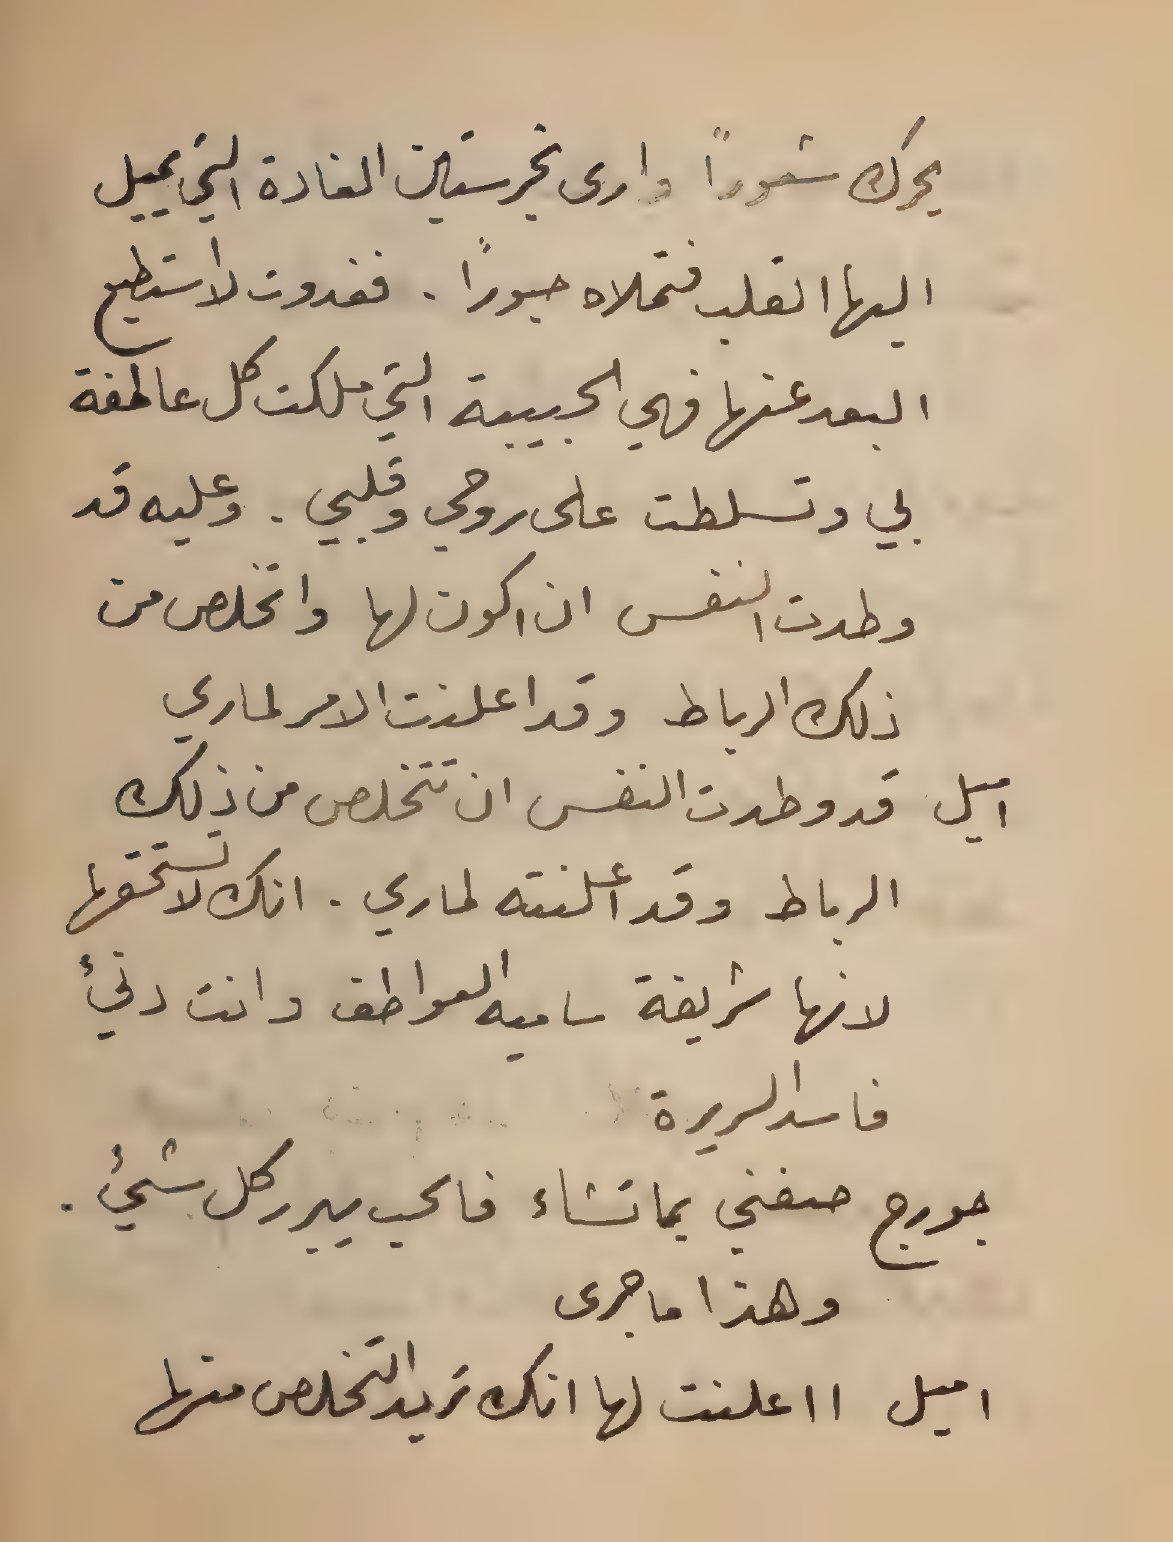 يحرك شعوراً وارى بحرستين الغادة التي يميل
اليها القلب فتملاه حبوراً . فغدوت لا استطيع
البعد عنها فهي الحبيبة التي ملكت كل عاطفة
بي وتسلطت على روحي وقلبي . وعليه قد
وطدت النفس ان اكون لها واتخلص من
ذلك الرباط وقد اعلنت الامر لماري
اميل قد وطدت النفس ان تتخلص من ذلك
الرباط وقد اعلنته لماري . انك لا تستحقها
لانها شريفة ساميه العواطف وانت دنيء
فاسد السريرة
جورج صفني بما تشاء فالحب يبرر كل شيء .
وهذا ما جرى
اميل ااعلنت لها انك تريد التخلص منها